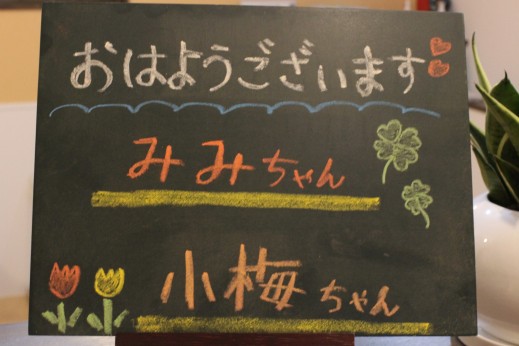 おはようございます
みみちゃん
小梅ちゃん